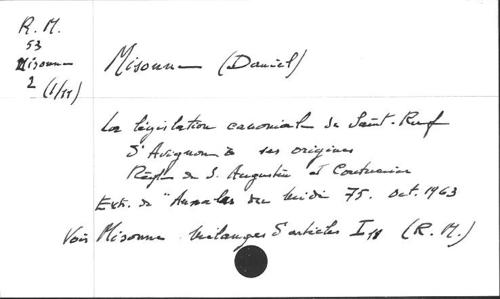 R. M.
53
Misonne
2 (1/11)
Misonne (Daniel)
La législation canoniale de Saint-Ruf
d'Avignon à ses origines
Règle de S. Augustin et Coutumier
Extr. de "Annales du Midi 75. Oct. 1963
Voir Misonne Mélanges d'articles I,11 (R. M.)